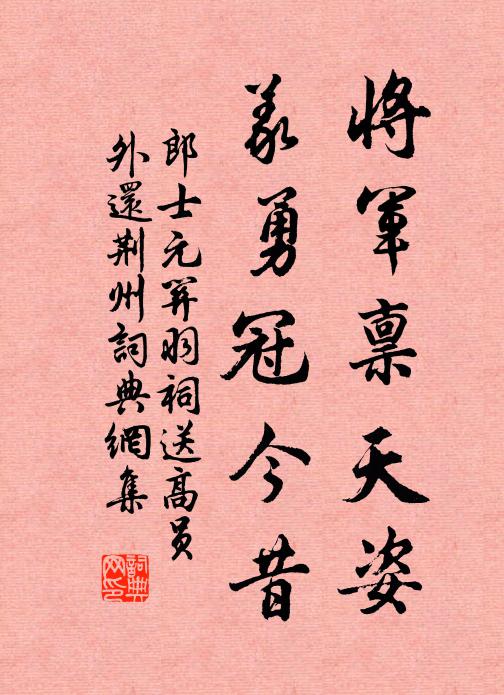 將軍禀天姿
義勇冠今昔
郎士元關羽祠送高员
外還荆州詞典網集
詞典
网印